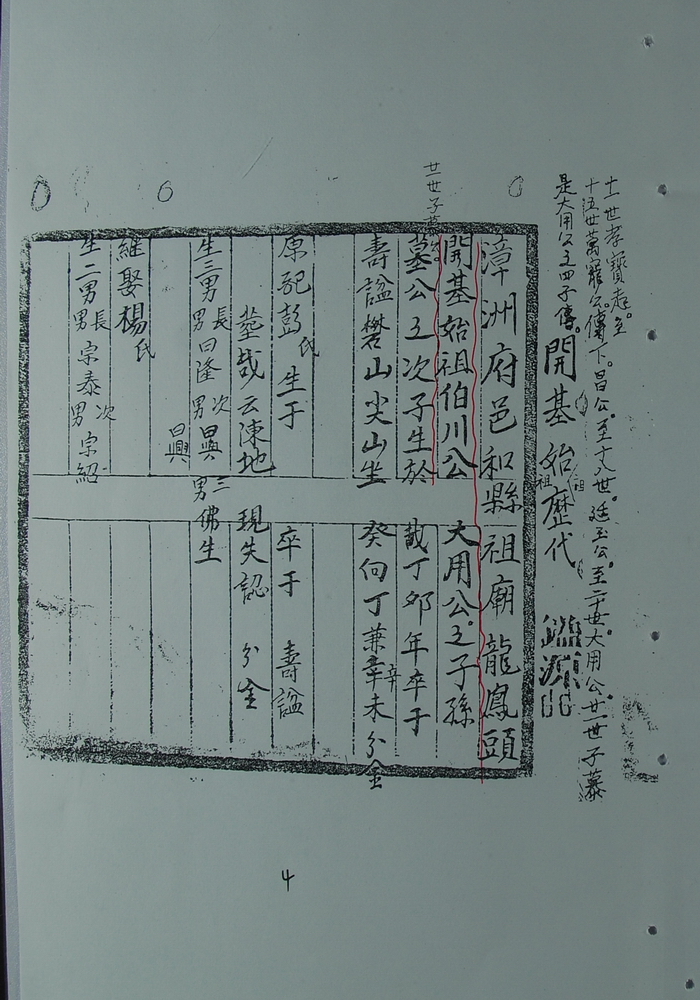 十一世孝寶起。至
十五世萬寵公傳下。昌公。至十八世。廷玉公。至二十世大用公。廿一世子慕
是大用公之四子傳。
開基始歷代
祖
鑑源
漳洲府邑和縣祖廟龍鳳頭
開基始祖伯川公 大用公之子孫
廿一世子慕
墓公之次子生於 戠丁夘年卒于
壽諡礬山尖山坐 癸向丁兼辛未分金
原配彭氏 生于 卒于 壽諡
塋哉云涷地 現失認 分金
生三男 長男曰隆 次男曰興 三男佛生
曰興
維娶楊氏
生二男 長男宗泰 次男宗紹
4